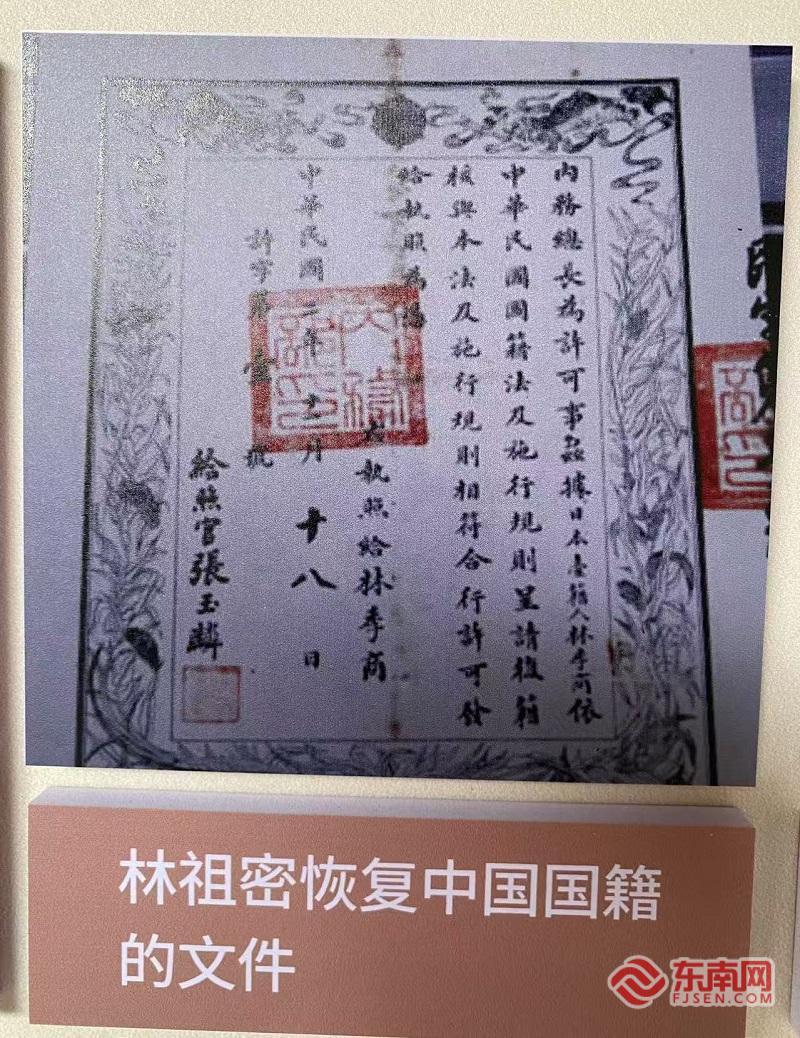 內務總長為許可事茲據日本臺籍人林季商依
中華民國國籍法及施行規則呈請復籍
核與本法及施行規則相符合行許可發
給執照為憑
右執照給林季商
中華民國二年十一月十八日
許字第壹號
給照官張玉麟
內務部印
林祖密恢复中国国籍
的文件
东南网
FJSEN.COM